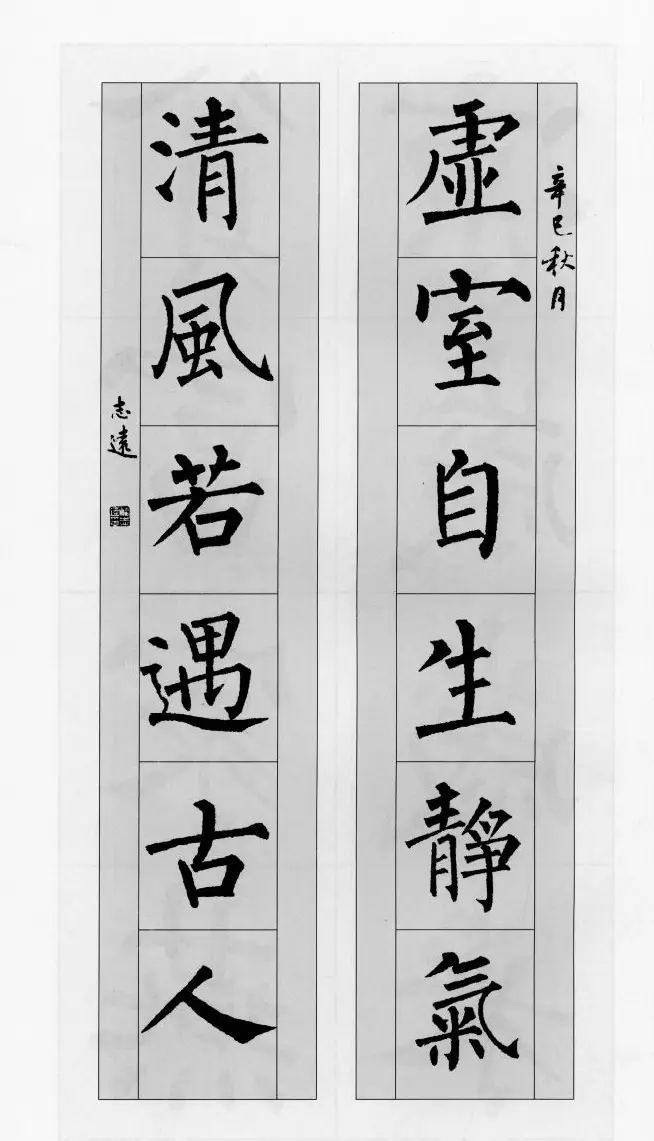 辛巳秋月
虛室自生靜氣
清風若遇古人
志遠